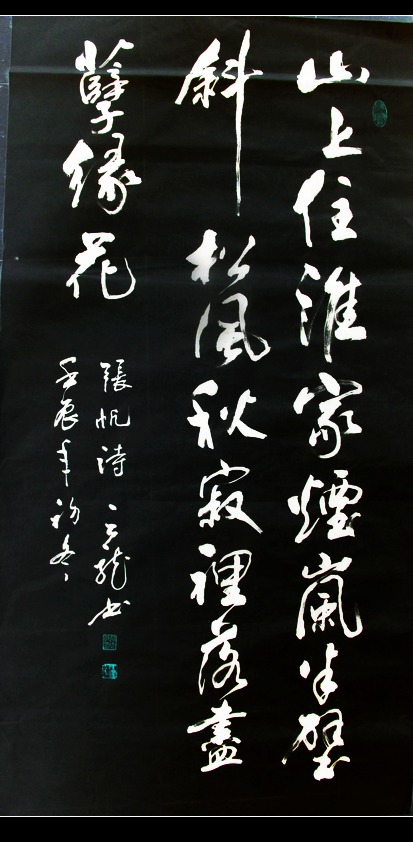 山上住誰家煙嵐半壁
斜 松風秋寂裡落盡
孽緣花
張帆詩 龍书
壬辰年初冬